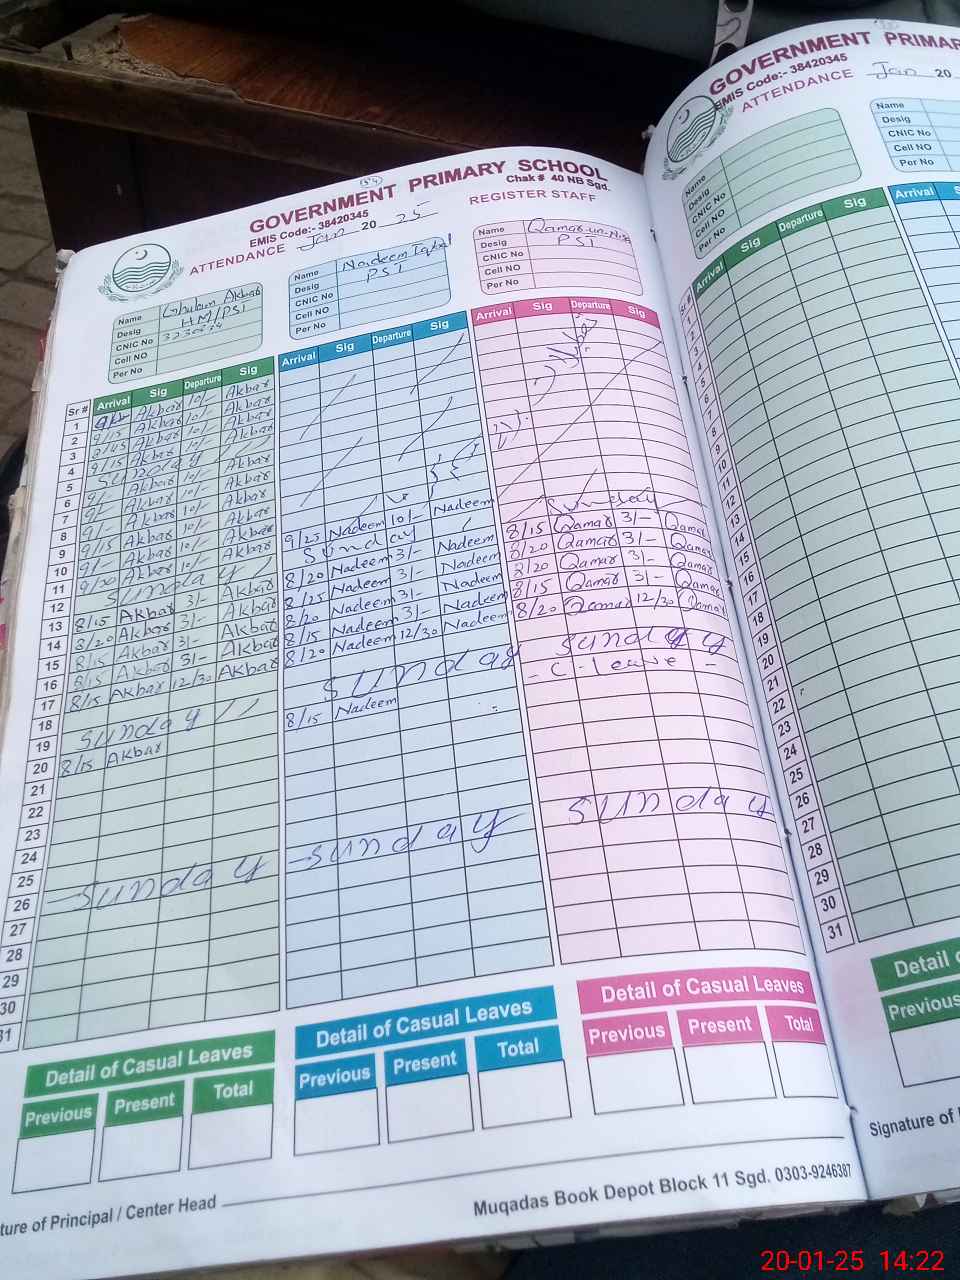 GOVERNMENT PRIMARY SCHOOL
Chak # 40 NB Sgd.
EMIS Code:- 38420345
ATTENDANCE Jan 20 25 REGISTER STAFF
Name Ghulam Akbar
Desig HM/PST
CNIC No
Cell NO
Per No
Name Nadeem Iqbal
Desig PST
CNIC No
Cell NO
Per No
Name Qamar-un-Nisa
Desig PST
CNIC No
Cell NO
Per No
Sr # Arrival Sig Departure Sig Arrival Sig Departure Sig Arrival Sig Departure Sig
1 Akbar 10/- Akbar
2 9/15 Akbar 10/- Akbar
3 Akbar 10/- Akbar
4 9/15 Akbar 10/- Akbar
5 Sunday
6 9/- Akbar 10/- Akbar
7 9/- Akbar 10/- Akbar
8 9/- Akbar 10/- Akbar
9 9/15 Akbar 10/- Akbar
10 9/- Akbar 10/- Akbar
11 9/20 Akbar 10/- Akbar 9/25 Nadeem 10/- Nadeem
12 Sunday Sunday Sunday
13 8/15 Akbar 3/- Akbar 8/20 Nadeem 3/- Nadeem 8/15 Qamar 3/- Qamar
14 8/20 Akbar 3/- Akbar 8/25 Nadeem 3/- Nadeem 8/20 Qamar 3/- Qamar
15 8/15 Akbar 3/- Akbar 8/20 Nadeem 3/- Nadeem 8/20 Qamar 3/- Qamar
16 8/15 Akbar 3/- Akbar 8/15 Nadeem 3/- Nadeem 8/15 Qamar 3/- Qamar
17 8/15 Akbar 12/30 Akbar 8/20 Nadeem 12/30 Nadeem 8/20 Qamar 12/30 Qamar
18
19 Sunday Sunday Sunday
20 8/15 Akbar 8/15 Nadeem - C-leave -
21
22
23
24
25
26 Sunday Sunday Sunday
27
28
29
30
31
Detail of Casual Leaves Detail of Casual Leaves Detail of Casual Leaves
Previous Present Total Previous Present Total Previous Present Total
ture of Principal / Center Head
Muqadas Book Depot Block 11 Sgd. 0303-9246387
GOVERNMENT PRIMAR
EMIS Code:- 38420345
ATTENDANCE Jan 20
Name
Desig
CNIC No
Cell NO
Per No
Name
Desig
CNIC No
Cell NO
Per No
Sr # Arrival Sig Departure Sig Arrival S
1
2
3
4
5
6
7
8
9
10
11
12
13
14
15
16
17
18
19
20
21
22
23
24
25
26
27
28
29
30
31
Detail
Previous
Signature of
20-01-25 14:22